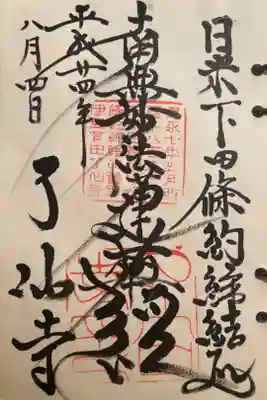 日米下田條約締結処
南無妙法蓮華経
平成廿四年
八月四日
了仙寺